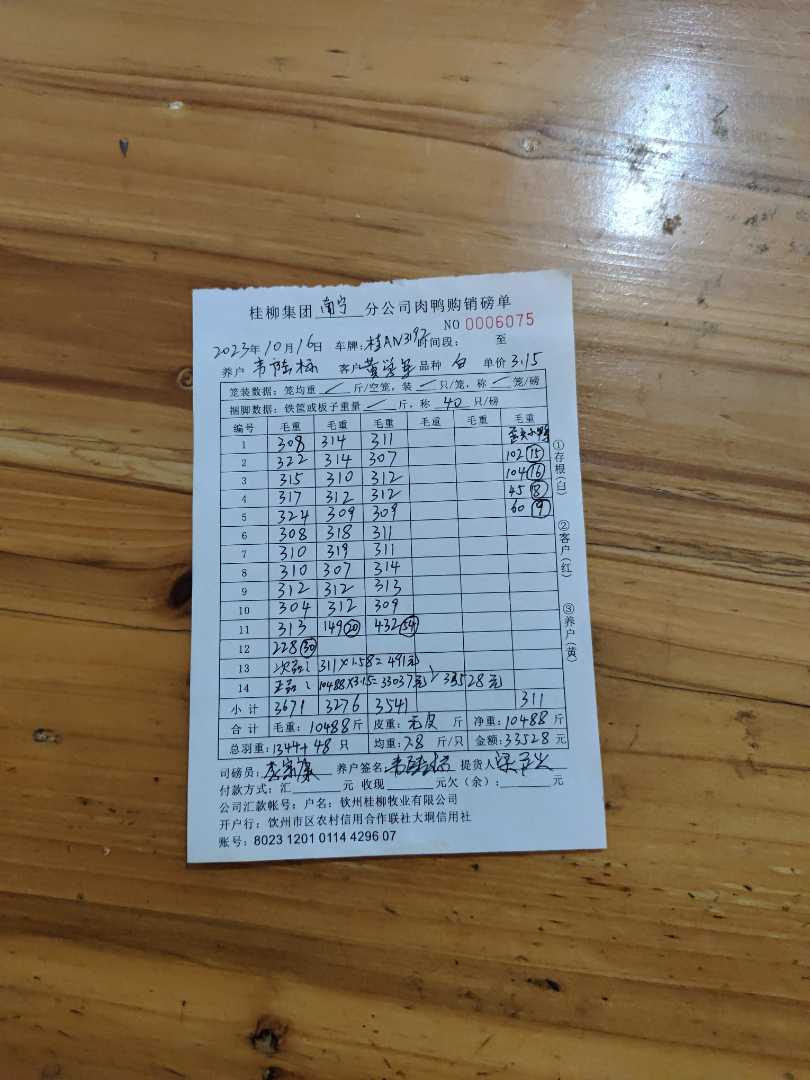 桂柳集团 南宁 分公司肉鸭购销磅单
NO 0006075
2023年10月16日 车牌:桂AN3192 时间段: 至
养户 韦陆标 客户 黄 品种 白 单价 3.15
笼装数据:笼均重 / 斤/空笼,装 / 只/笼,称 / 笼/磅
捆脚数据:铁筐或板子重量 / 斤,称 40 只/磅
编号 毛重 毛重 毛重 毛重 毛重 毛重
1 308 314 311
2 322 314 307 102 15
3 315 310 312 104 16
4 317 312 312 45 8
5 324 309 309 60 9
6 308 318 311
7 310 319 311
8 310 307 314
9 312 312 313
10 304 312 309
11 313 149 20 432 54
12 228 30
13 次品: 311×1.58=491元
14 正品: 10488×3.15=33037元 33528元
小计 3671 3276 3541 311
合计 毛重:10488斤 皮重:无皮 斤 净重:10488斤
总羽重:1344+48 只 均重:7.8 斤/只 金额:33528元
司磅员: 养户签名: 韦陆标 提货人:
付款方式:汇 元 收现 元欠(余): 元
公司汇款帐号:户名:钦州桂柳牧业有限公司
开户行:钦州市区农村信用合作联社大垌信用社
账号:8023 1201 0114 4296 07
①存根(白)
②客户(红)
③养户(黄)